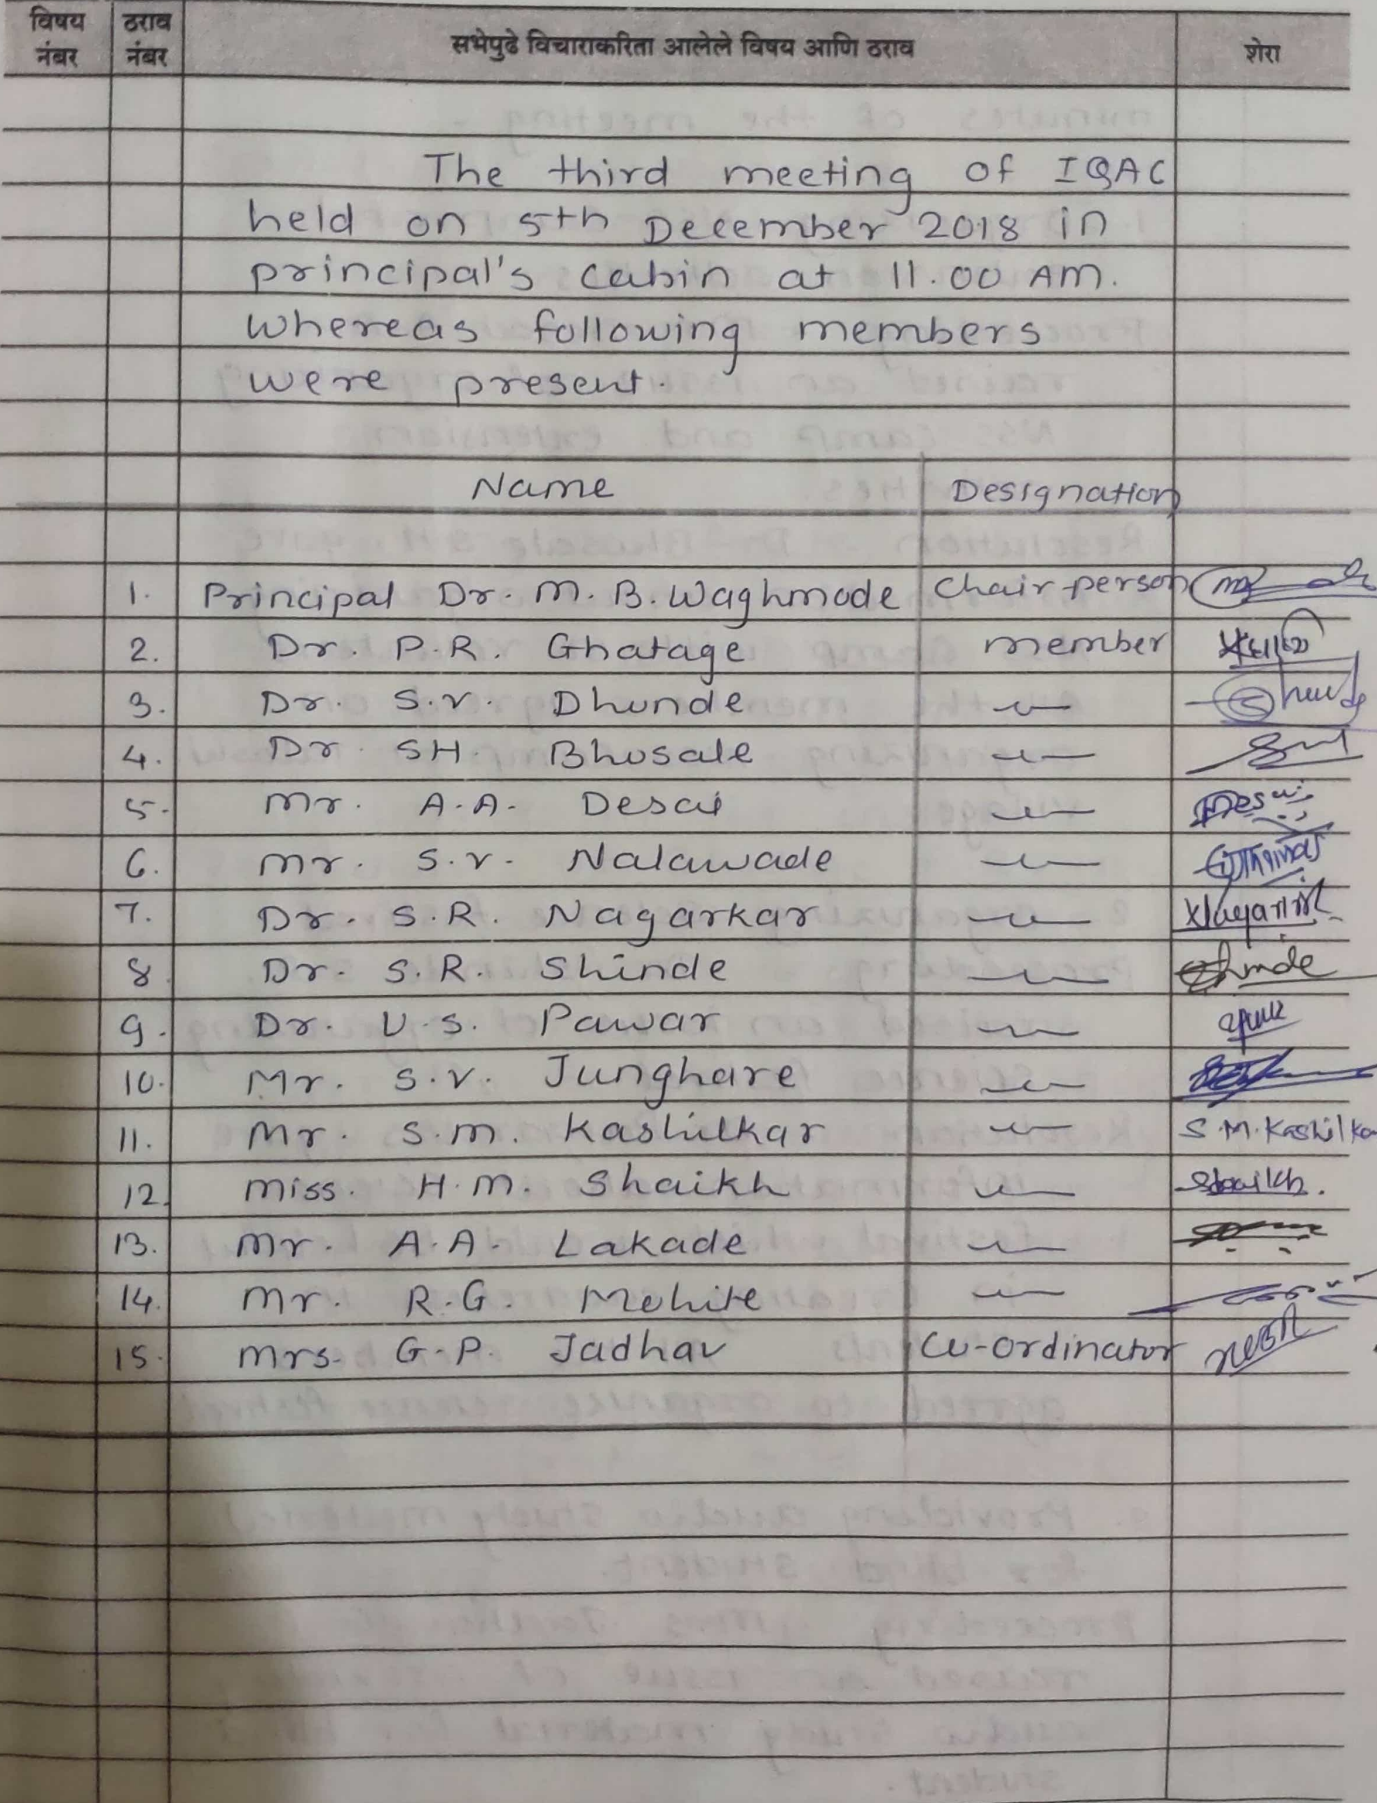 विषय नंबर ठराव नंबर सभेपुढे विचाराकरिता आलेले विषय आणि ठराव शेरा
The third meeting of IQAC
held on 5th December 2018 in
principal's cabin at 11.00 AM.
whereas following members
were present.
Name Designation
1. Principal Dr. M. B. Waghmode Chair person
2. Dr. P.R. Ghatage member
3. Dr. S.V. Dhunde -"-
4. Dr SH Bhosale -"-
5. Mr. A.A. Desai -"- Desai
6. Mr. S.V. Nalawade -"-
7. Dr. S.R. Nagarkar -"-
8 Dr. S.R. Shinde -"- Shinde
9. Dr. U.S. Pawar -"-
10. Mr. S.V. Junghare -"-
11. Mr. S.M. Kashilkar -"- S.M.Kashilka
12. Miss. H.M. Shaikh -"- Shaikh.
13. Mr. A.A. Lakade -"-
14. Mr. R.G. Mohite -"-
15. Mrs. G.P. Jadhav Co-ordinator